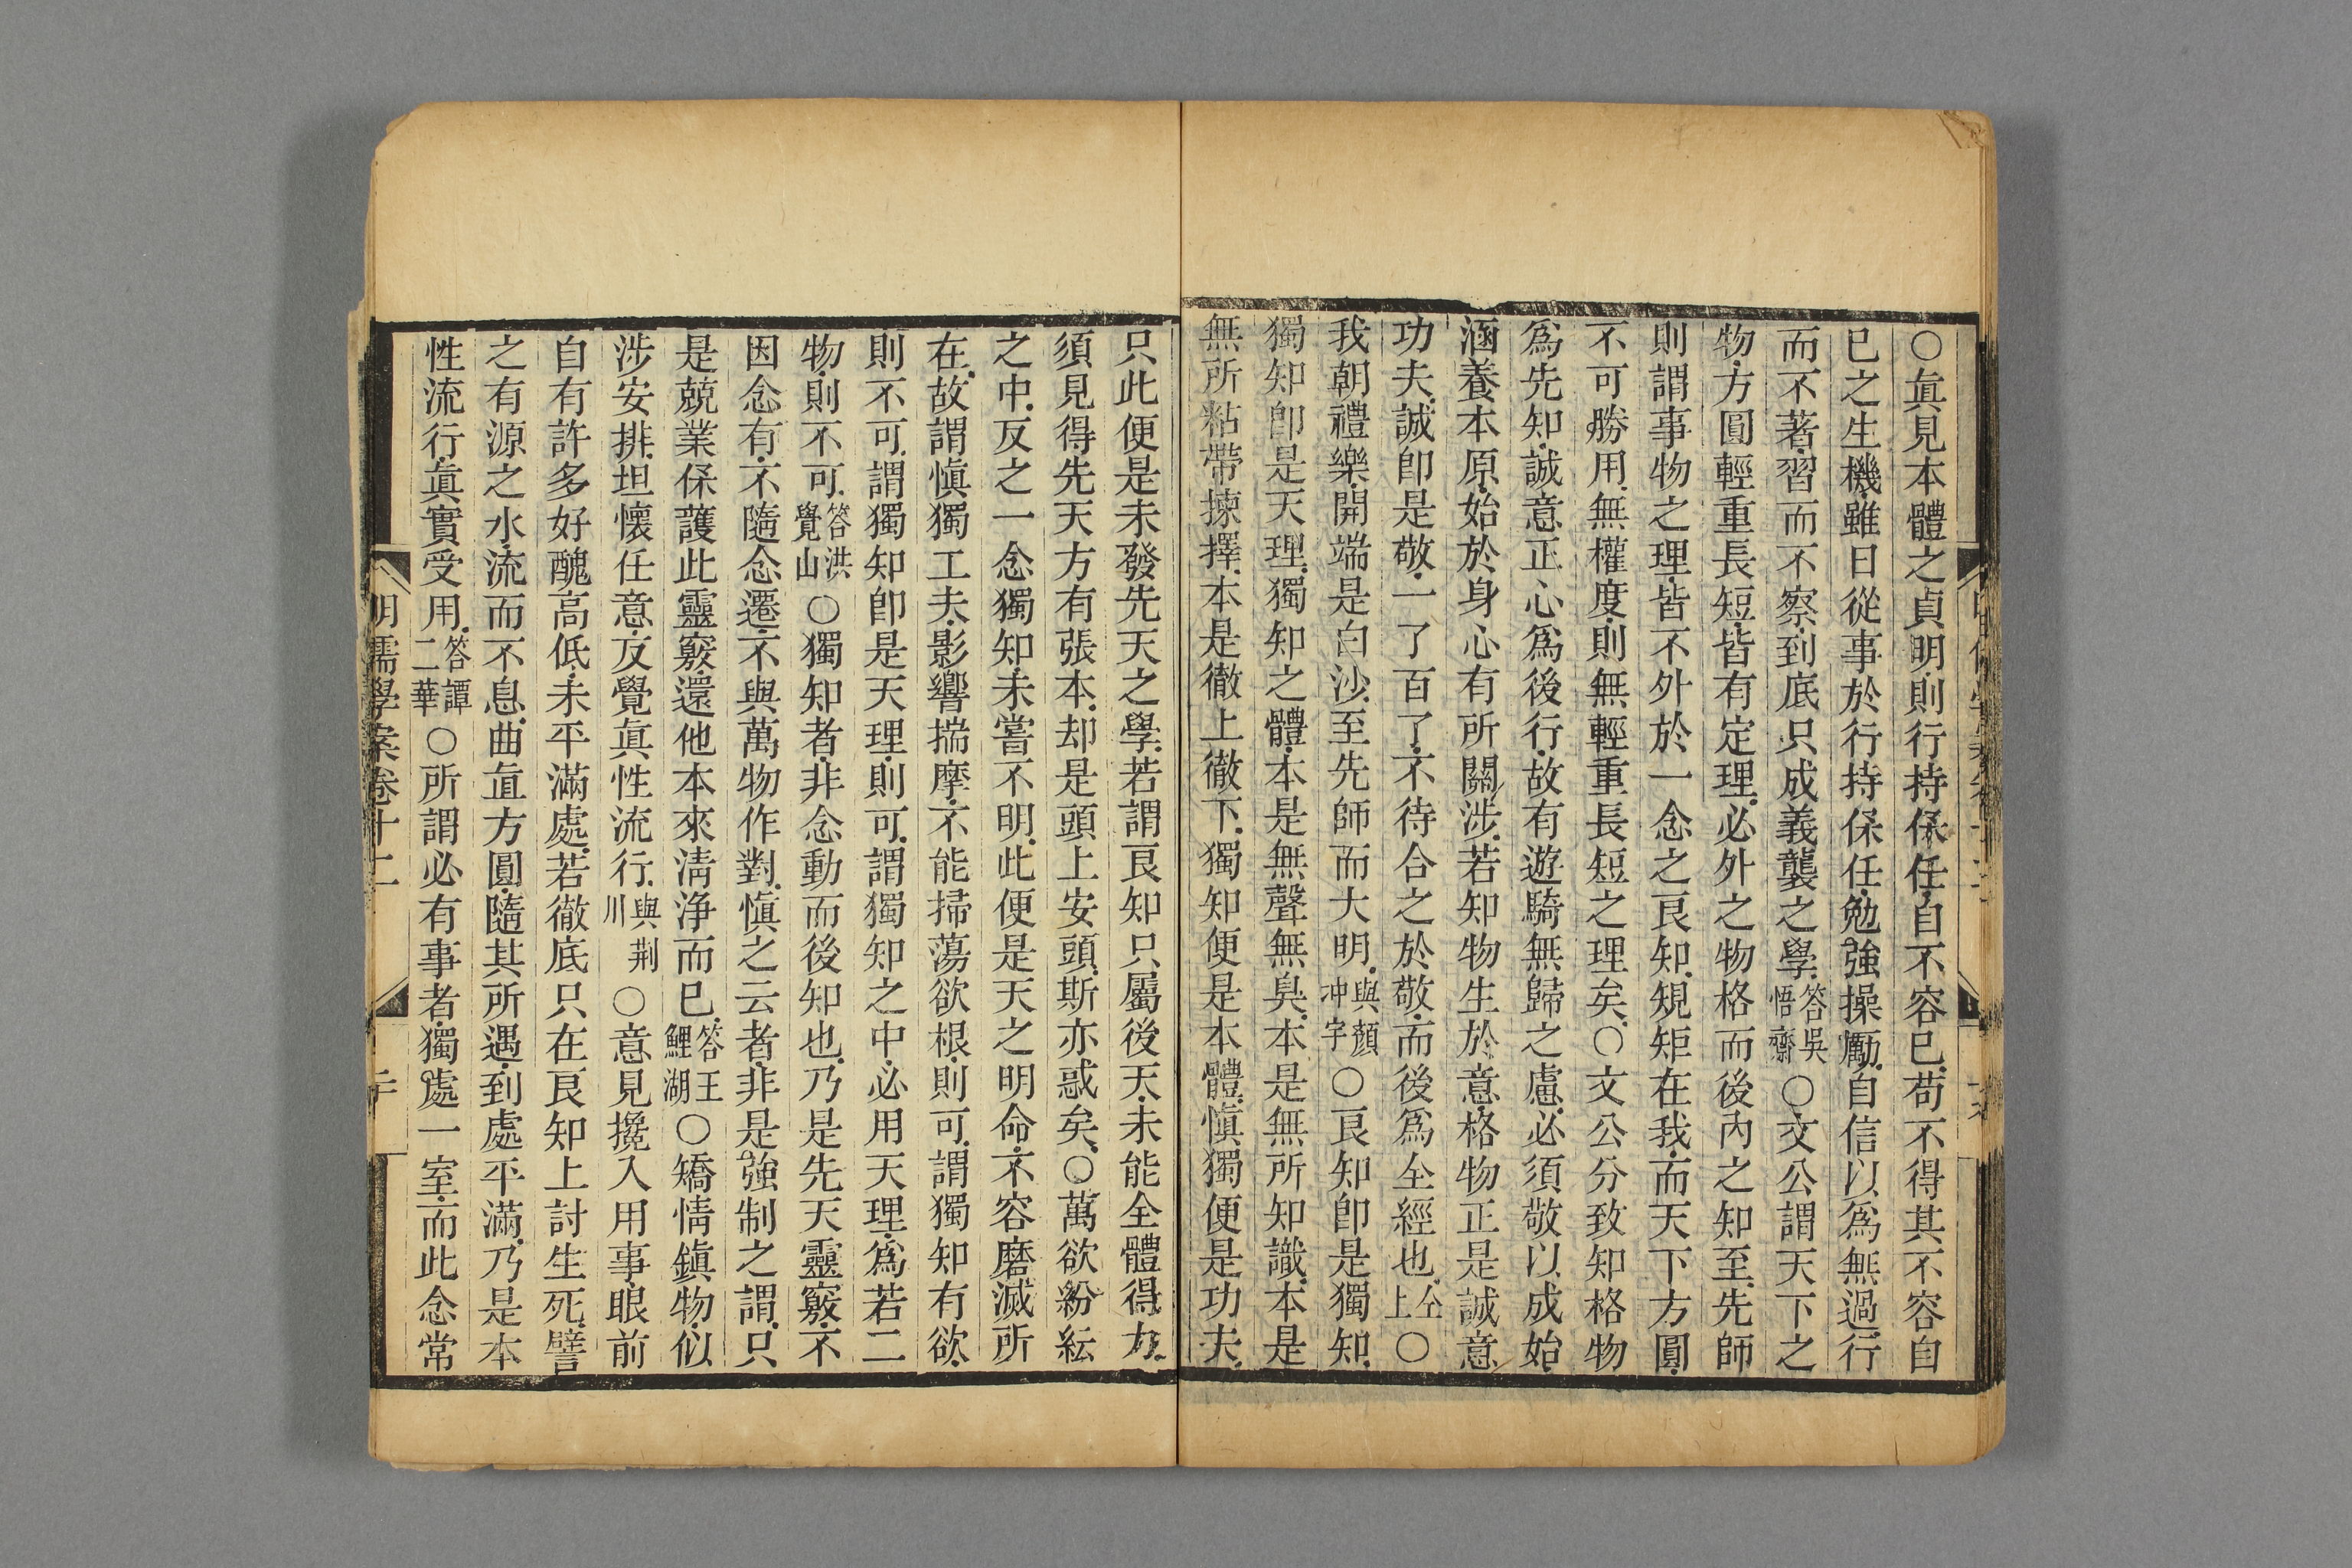 ○眞見本體之貞明則行持保任自不容已苟不得其不容自
已之生機雖日從事於行持保任勉強操勵自信以爲無過行
而不著習而不察到底只成義襲之學答吳悟齋○文公謂天下之
物方圓輕重長短皆有定理必外之物格而後內之知至先師
則謂事物之理皆不外於一念之良知規矩在我而天下方圓
不可勝用無權度則無輕重長短之理矣○文公分致知格物
爲先知誠意正心爲後行故有遊騎無歸之慮必須敬以成始
涵養本原始於身心有所關涉若知物生於意格物正是誠意
功夫誠卽是敬一了百了不待合之於敬而後爲全經也仝上○
我朝禮樂開端是白沙至先師而大明與顏冲宇○良知卽是獨知
獨知卽是天理獨知之體本是無聲無臭本是無所知識本是
無所粘帶揀擇本是徹上徹下獨知便是本體慎獨便是功夫
只此便是未發先天之學若謂良知只屬後天未能全體得力
須見得先天方有張本却是頭上安頭斯亦惑矣○萬欲紛紜
之中反之一念獨知未嘗不明此便是天之明命不容磨滅所
在故謂慎獨工夫影響揣摩不能掃蕩欲根則可謂獨知有欲
則不可謂獨知卽是天理則可謂獨知之中必用天理爲若二
物則不可答洪覺山○獨知者非念動而後知也乃是先天靈竅不
因念有不隨念遷不與萬物作對慎之云者非是強制之謂只
是兢業保護此靈竅還他本來淸淨而已答王鯉湖○矯情鎭物似
涉安排坦懷任意反覺眞性流行與荆川○意見攙入用事眼前
自有許多好醜高低未平滿處若徹底只在良知上討生死譬
之有源之水流而不息曲直方圓隨其所遇到處平滿乃是本
性流行眞實受用答譚二華○所謂必有事者獨處一室而此念常
明儒學案卷十二